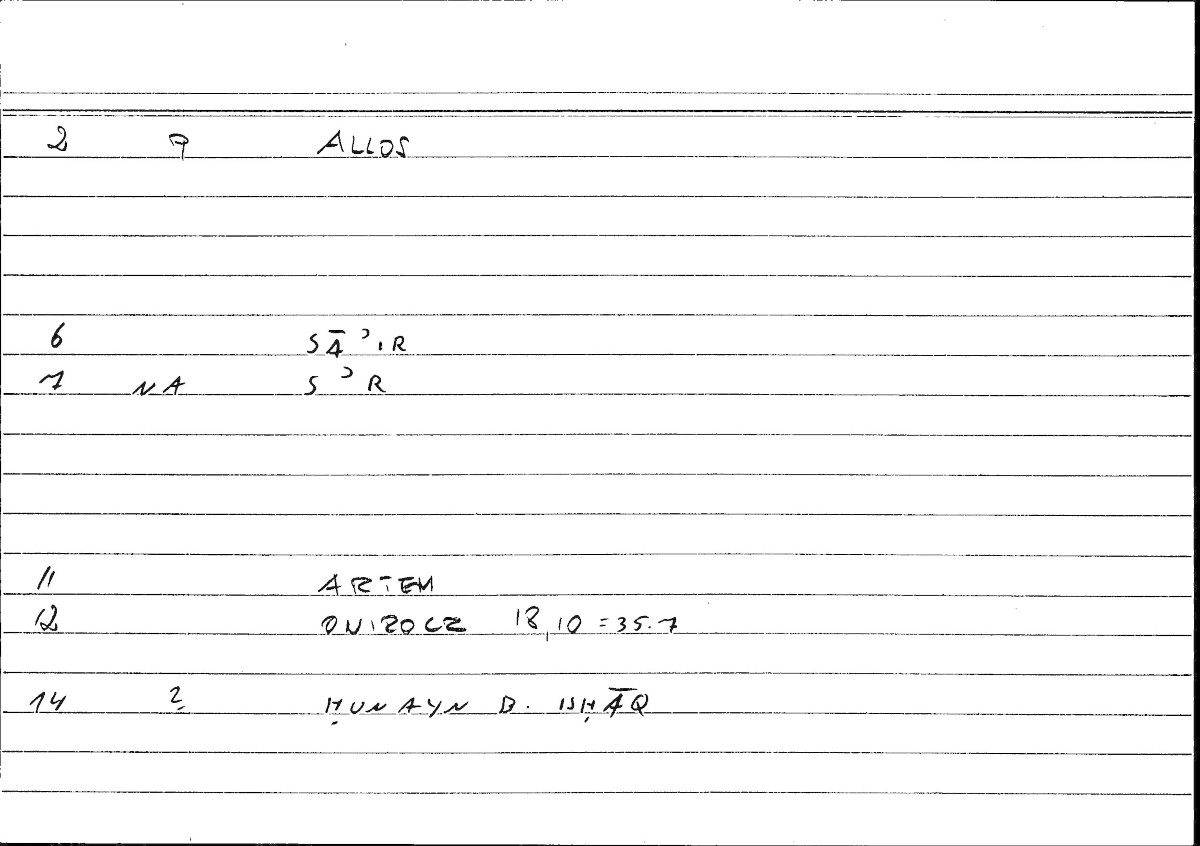 2 9 ALLOS
6 SĀʾIR
7 NA SʾR
11 ARTEM
12 ONIROCR 18,10 = 35.7
14 2 ḤUNAYN B. ISḤĀQ